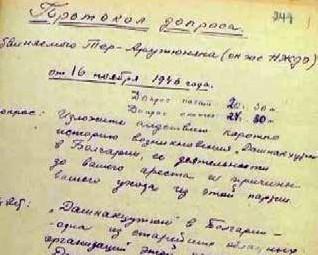 249
Протокол допроса.
обвиняемого Тер-Арутюняна (он же НЖДЭ)
от 16 ноября 1946 года.
Допрос начат 20. 30 м.
Допрос окончен 24. 30 м.
опрос: Изложите следствию коротко
историю возникновения „Дашнакцутюн"
в Болгарии, её деятельности
до вашего ареста и причины
вашего ухода из этой партии.
„Дашнакцутюн" в Болгарии –
одна из старейших
организаций этой